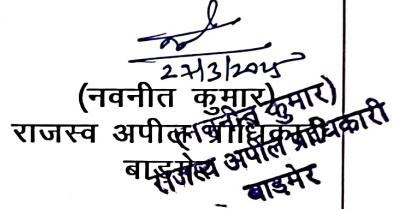 27/3/2025
(नवनीत कुमार)
राजस्व अपील प्राधिकारी
बाड़मेर
(नवनीत कुमार)
राजस्व अपील प्राधिकारी
बाड़मेर